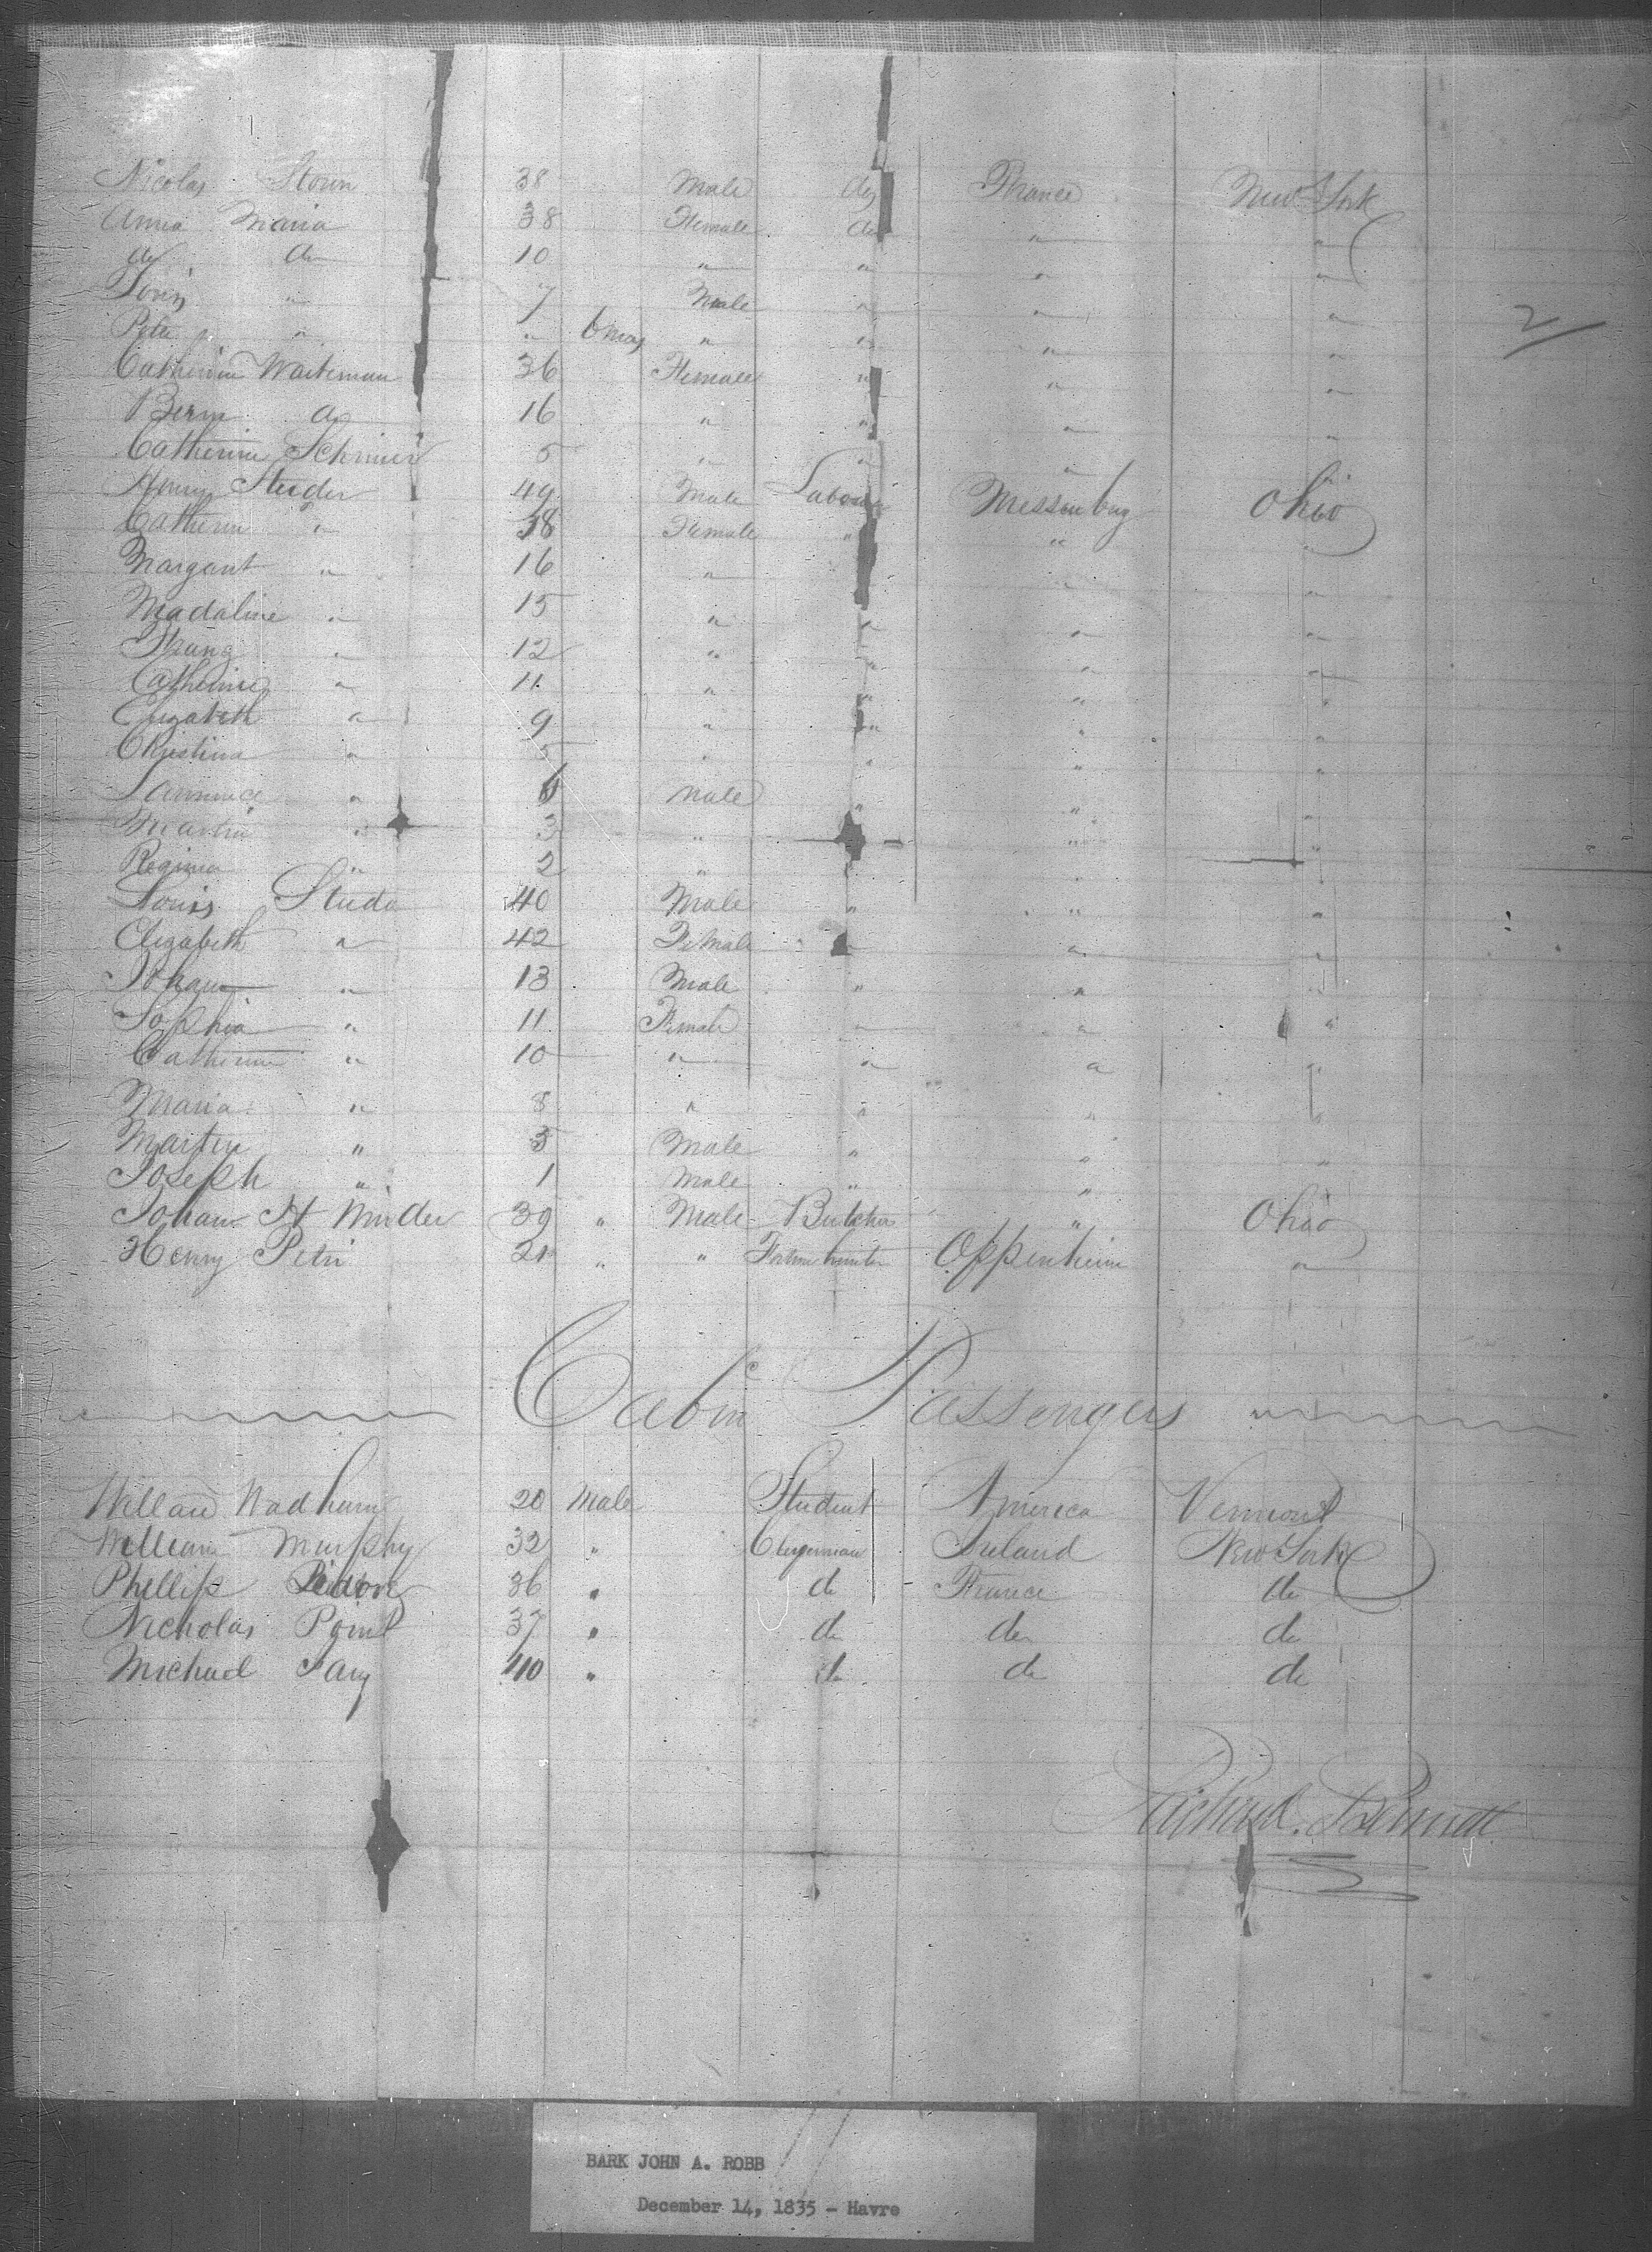 Nicolas Stown 38 Male do France New York
Anna Maria 38 Female do " "
do do 10 " " " "
Loris " 7 Male " " "
Peter " " 6 mos " " " "
Catherine Waiteman 36 Female " " "
do 16 " " " "
Catherine Schmier 5 " " " "
Henry Studer 49 Male Labour Messenburg Ohio
Catherin " 38 Female " " "
Margant " 16 " " " "
Madaline " 15 " " " "
" 12 " " " "
Catherine " 11 " " " "
Elizabeth " 9 " " " "
Christina " 5 " " " "
" 6 Male " " "
Martin " 3 " " " "
Regina " 2 " " " "
Louis Studa 40 Male " " "
Elizabeth " 42 Female " " "
Johan " 13 Male " " "
Sophia " 11 Female " " "
Catherine " 10 " " " "
Maria " 8 " " " "
Martin " 5 Male " " "
Joseph " 1 Male " " "
Johan H Minder 39 " Male Butcher " Ohio
Henry Petri 21 " " Oppenheim "
Cabin Passengers
Willard Wadham 20 Male Student America Vermont
William Murphy 32 " Clergeman Ireland New York
Phillip 36 " do France do
Nicholas Point 37 " do do do
Michael 40 " do do do
Richard Bennett
2
BARK JOHN A. ROBB
December 14, 1835 - Havre